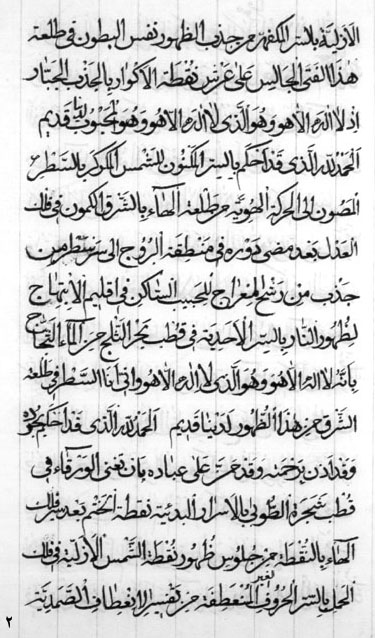 الازلیة بالسر الکفهر حرجذب الظهور نفس البطون فی طلعة
هذا الفتی الجالس علی عرش نقطة الاکوار بالجذب الجبار
اذ لا اله الا هو وهو الذی لا اله الا هو وهو المحبوب قدیم
الحمد لله الذی قد احکم بالسر الکنون للشمس الکرکر بالسطر
المصون الی الحرکة الهویة حر طلعة الهاء بالشرق الکمون فی فلك
العدل بعد مضی دوره فی منطقة البروج الی سر سطر من
جذب من رشح المعراج للحبیب الساکن فی اقلیم الابتهاج
لظهور النار بالسر الاحدیة فی قطب بحر الثلج حر الماء
بانه لا اله الا هو وهو الذی لا اله الا هو وانی انا السطر فی طلعة
الشرق حر هذا الظهور لدینا قدیم الحمد لله الذی قد احکم
وقد اذن برحمته وقد حر علی عباده بان تغنی الورقاء فی
قطب شجرة الطوبی بالاسرار البدئیة نقطة الختم بعد فلك
الهاء بالنقطة حر جلوس ظهور نقطة الشمس الازلیة فی فلك
الحمل بالسر الحروف لغیر المنعطفة حر تفسیر الانعطاف الصمدیة
٢